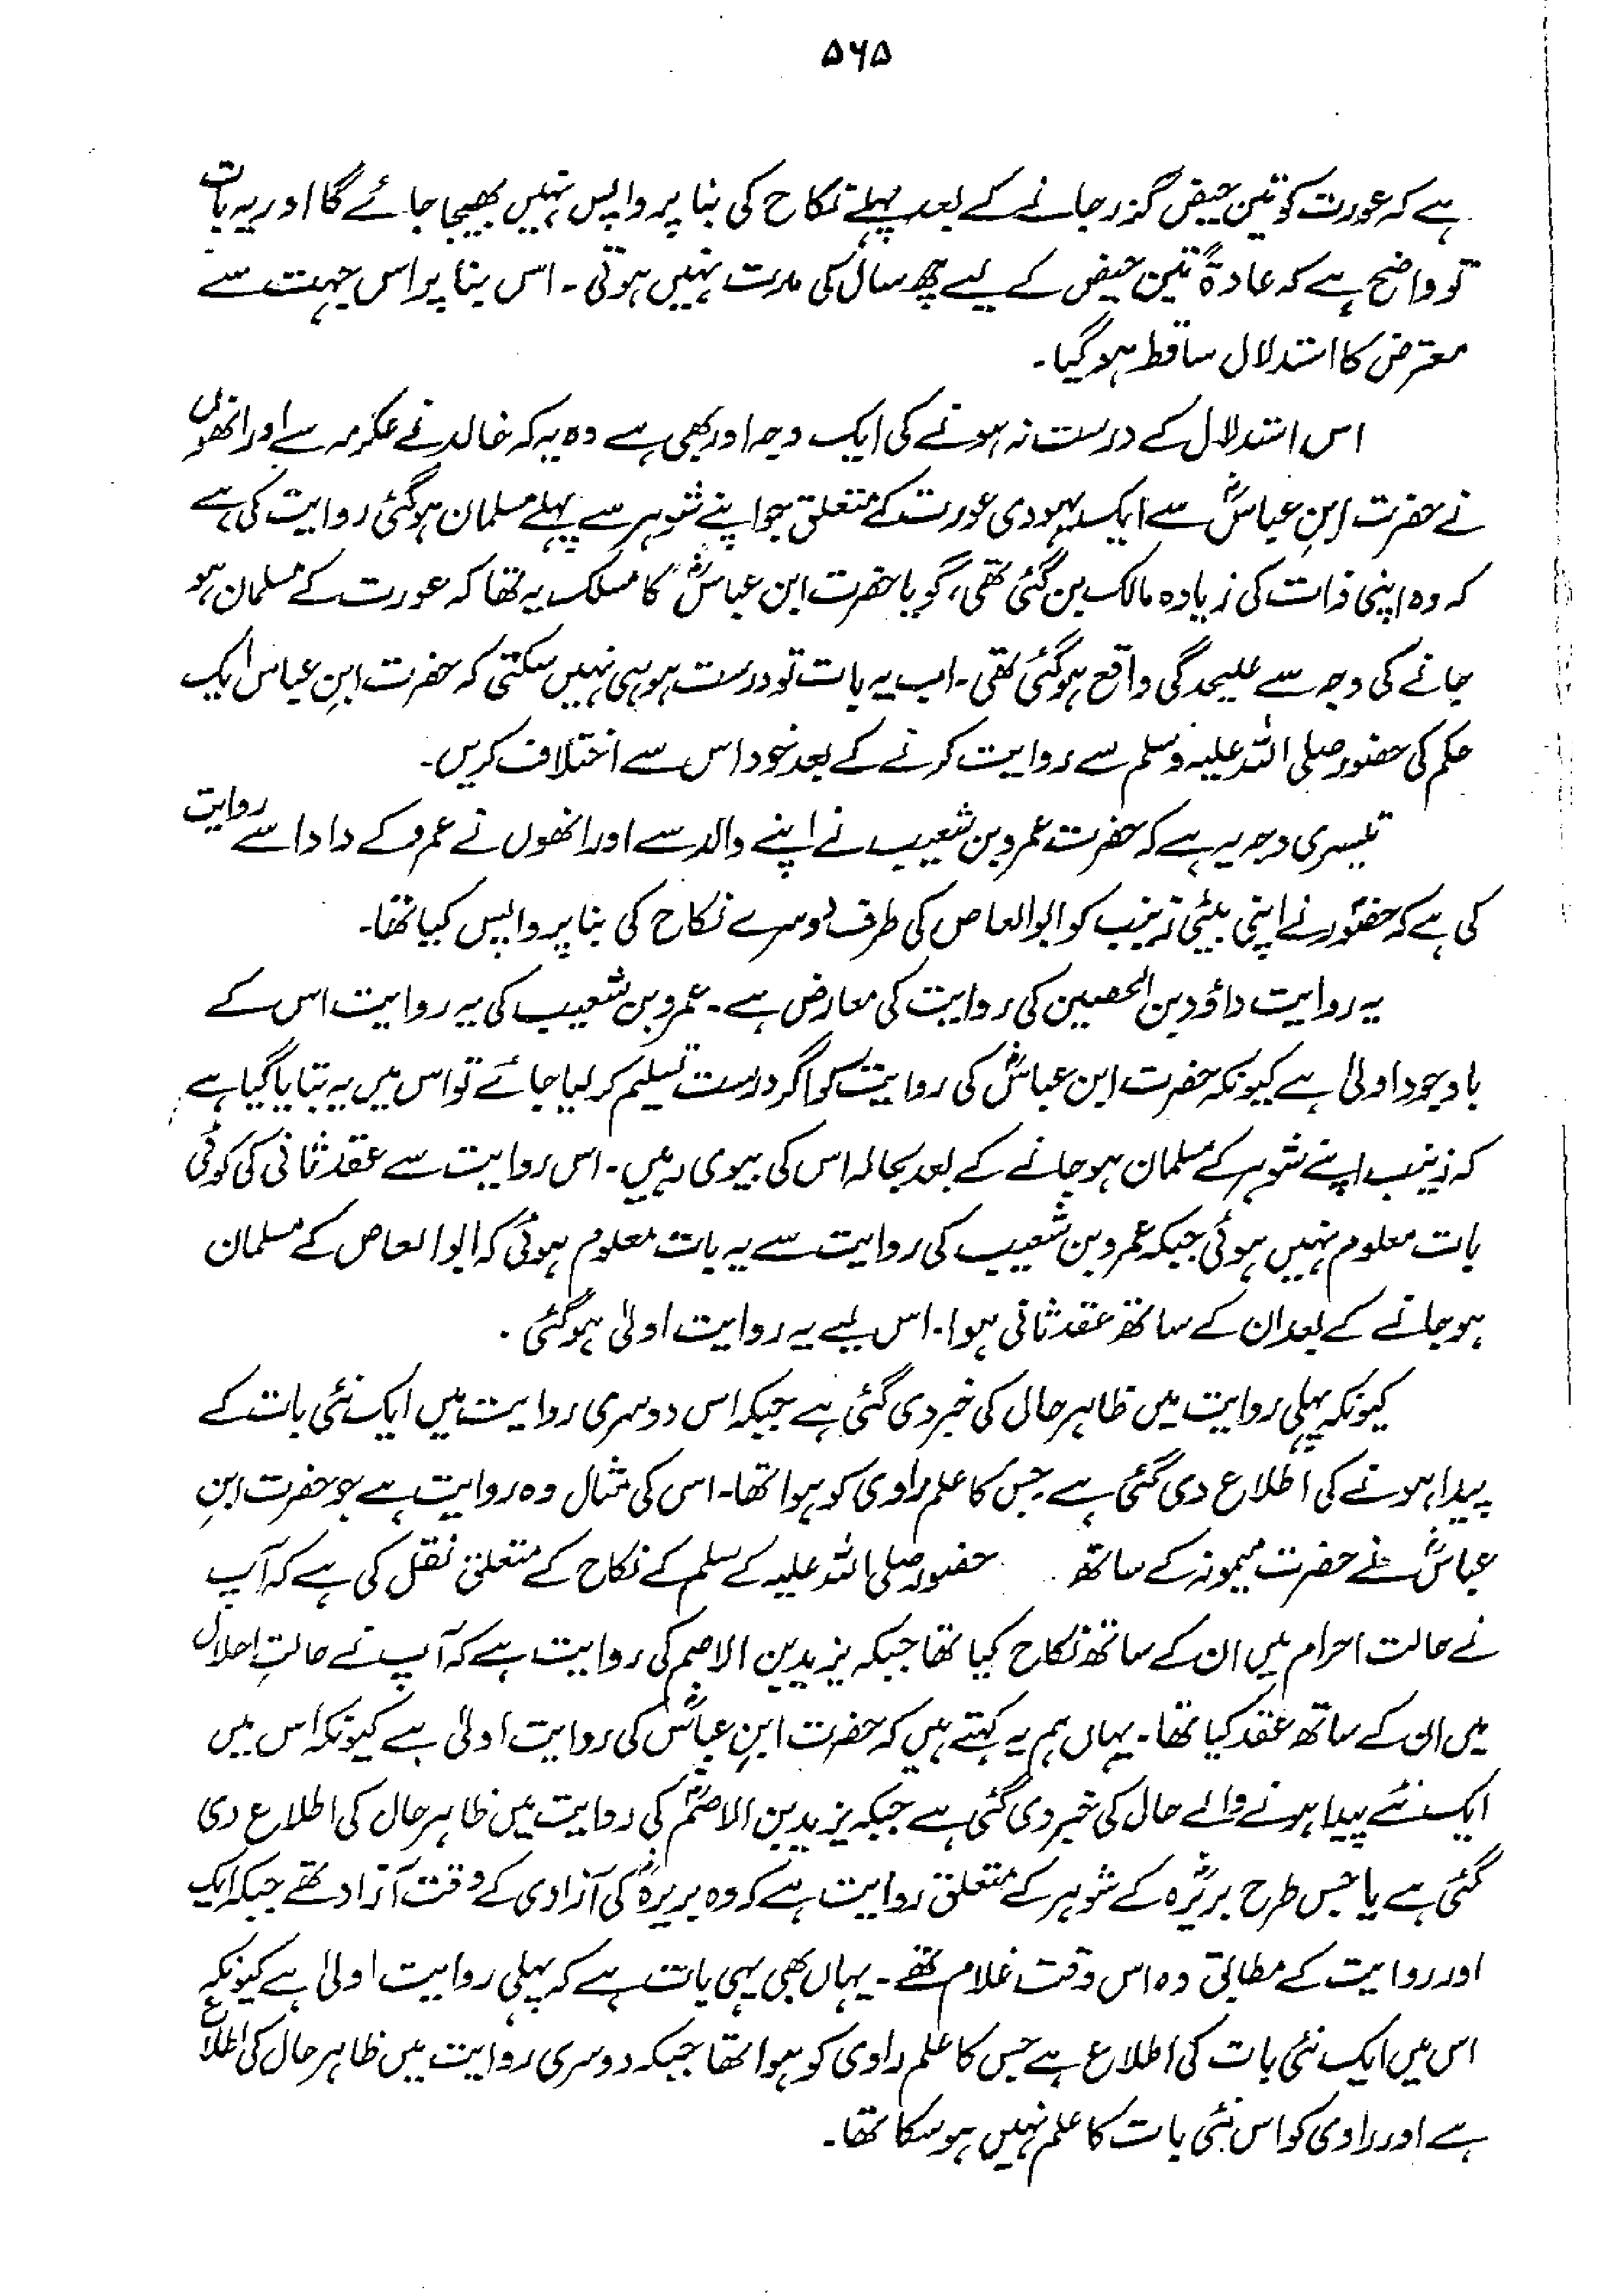 ۵۶۵
ہے کہ عورت کو تین حیض گزر جانے کے بعد پہلے نکاح کی بنا پر واپس نہیں بھیجا جائے گا اور یہ بات
تو واضح ہے کہ عادۃً تین حیض کے لیے چھ سال کی مدت نہیں ہوتی۔ اس بنا پر اس جہت سے
معترض کا استدلال ساقط ہو گیا۔
اس استدلال کے درست نہ ہونے کی ایک وجہ اور بھی ہے وہ یہ کہ خالد نے عکرمہ سے اور انھوں
نے حضرت ابنِ عباسؓ سے ایک یہودی عورت کے متعلق جو اپنے شوہر سے پہلے مسلمان ہو گئی روایت کی ہے
کہ وہ اپنی ذات کی زیادہ مالک بن گئی تھی، گویا حضرت ابن عباسؓ کا مسلک یہ تھا کہ عورت کے مسلمان ہو
جانے کی وجہ سے علیحدگی واقع ہو گئی تھی۔ اب یہ بات تو درست ہو ہی نہیں سکتی کہ حضرت ابنِ عباس ایک
حکم کی حضور صلی اللہ علیہ وسلم سے روایت کرنے کے بعد خود اس سے اختلاف کریں۔
تیسری وجہ یہ ہے کہ حضرت عمرو بن شعیب نے اپنے والد سے اور انھوں نے عمرو کے دادا سے روایت
کی ہے کہ حضورؐ نے اپنی بیٹی زینب کو ابو العاص کی طرف دوسرے نکاح کی بنا پر واپس کیا تھا۔
یہ روایت داؤد بن الحصین کی روایت کی معارض ہے۔ عمرو بن شعیب کی یہ روایت اس کے
باوجود اولیٰ ہے کیونکہ حضرت ابن عباسؓ کی روایت کو اگر درست تسلیم کر لیا جائے تو اس میں یہ بتایا گیا ہے
کہ زینب اپنے شوہر کے مسلمان ہو جانے کے بعد بحالہ اس کی بیوی رہیں۔ اس روایت سے عقد ثانی کی کوئی
بات معلوم نہیں ہوئی جبکہ عمرو بن شعیب کی روایت سے یہ بات معلوم ہوئی کہ ابو العاص کے مسلمان
ہو جانے کے بعد ان کے ساتھ عقد ثانی ہوا۔ اس لیے یہ روایت اولیٰ ہو گئی۔
کیونکہ پہلی روایت میں ظاہر حال کی خبر دی گئی ہے جبکہ اس دوسری روایت میں ایک نئی بات کے
پیدا ہونے کی اطلاع دی گئی ہے جس کا علم راوی کو ہوا تھا۔ اس کی مثال وہ روایت ہے جو حضرت ابنِ
عباسؓ نے حضرت میمونہ کے ساتھ حضور صلی اللہ علیہ کے سلم کے نکاح کے متعلق نقل کی ہے کہ آپ
نے حالت احرام میں ان کے ساتھ نکاح کیا تھا جبکہ یزید بن الاصم کی روایت ہے کہ آپ نے حالتِ احلال
میں ان کے ساتھ عقد کیا تھا۔ یہاں ہم یہ کہتے ہیں کہ حضرت ابنِ عباسؓ کی روایت اولیٰ ہے کیونکہ اس میں
ایک نئے پیدا ہونے والے حال کی خبر دی گئی ہے جبکہ یزید بن الاصمؓ کی روایت میں ظاہر حال کی اطلاع دی
گئی ہے یا جس طرح بریرہؓ کے شوہر کے متعلق روایت ہے کہ وہ بریرہؓ کی آزادی کے وقت آزاد تھے جبکہ ایک
اور روایت کے مطابق وہ اس وقت غلام تھے۔ یہاں بھی یہی بات ہے کہ پہلی روایت اولیٰ ہے کیونکہ
اس میں ایک نئی بات کی اطلاع ہے جس کا علم راوی کو ہوا تھا جبکہ دوسری روایت میں ظاہر حال کی اطلاع
ہے اور راوی کو اس نئی بات کا علم نہیں ہو سکا تھا۔